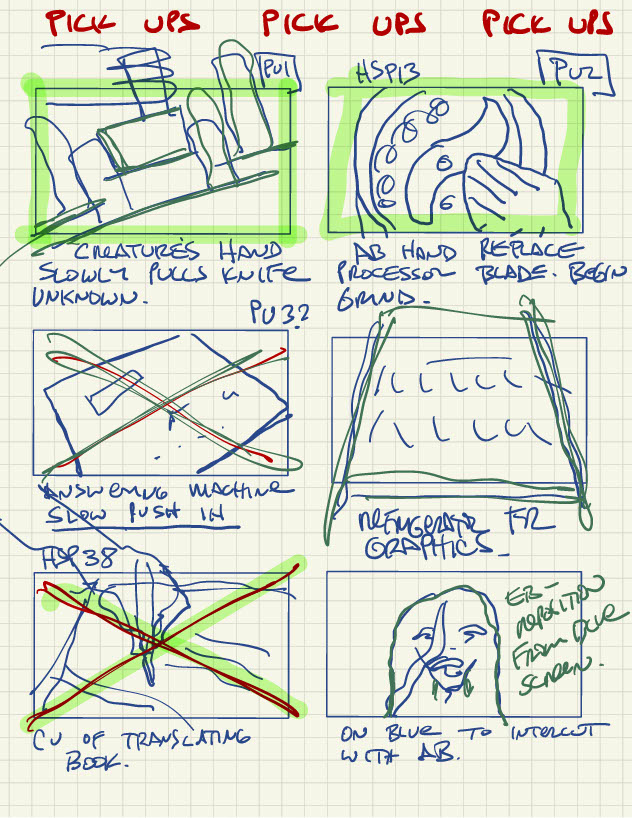 PICK UPS PICK UPS PICK UPS
PU1
HSP13
PU2
CREATURE'S HAND
SLOWLY PULLS KNIFE
UNKNOWN.
AB HAND REPLACE
PROCESSOR BLADE. BEGIN
GRIND.
PU3?
ANSWERING MACHINE
SLOW PUSH IN
REFRIGERATOR FOR
GRAPHICS
HSP38
CU OF TRANSLATING
BOOK.
EB-
REPOSITION
FROM BLUE
SCREEN.
ON BLUE TO INTERCUT
WITH AB.